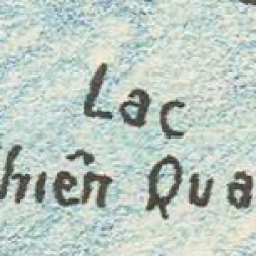 Lac
hiên Qua